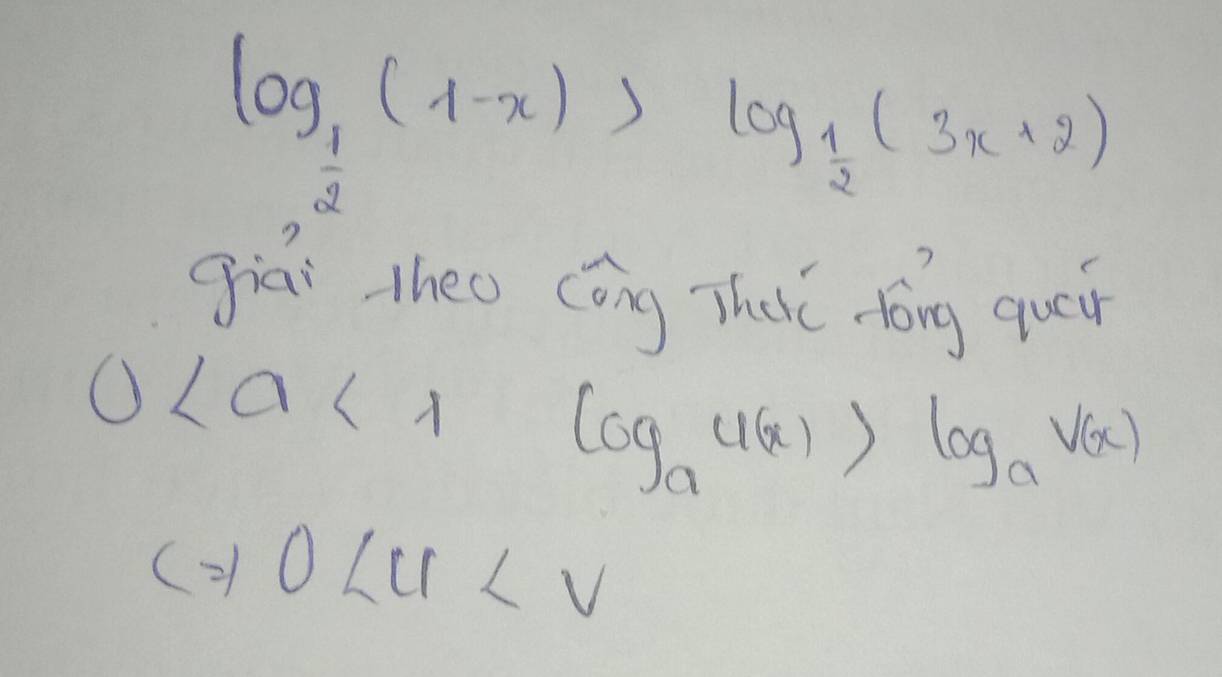 log_{\frac{1}{2}} (1-x) > log_{\frac{1}{2}} (3x+2)
giải theo công thức tổng quát
0 < a < 1 log_a u(x) > log_a v(x)
<=> 0 < u < v